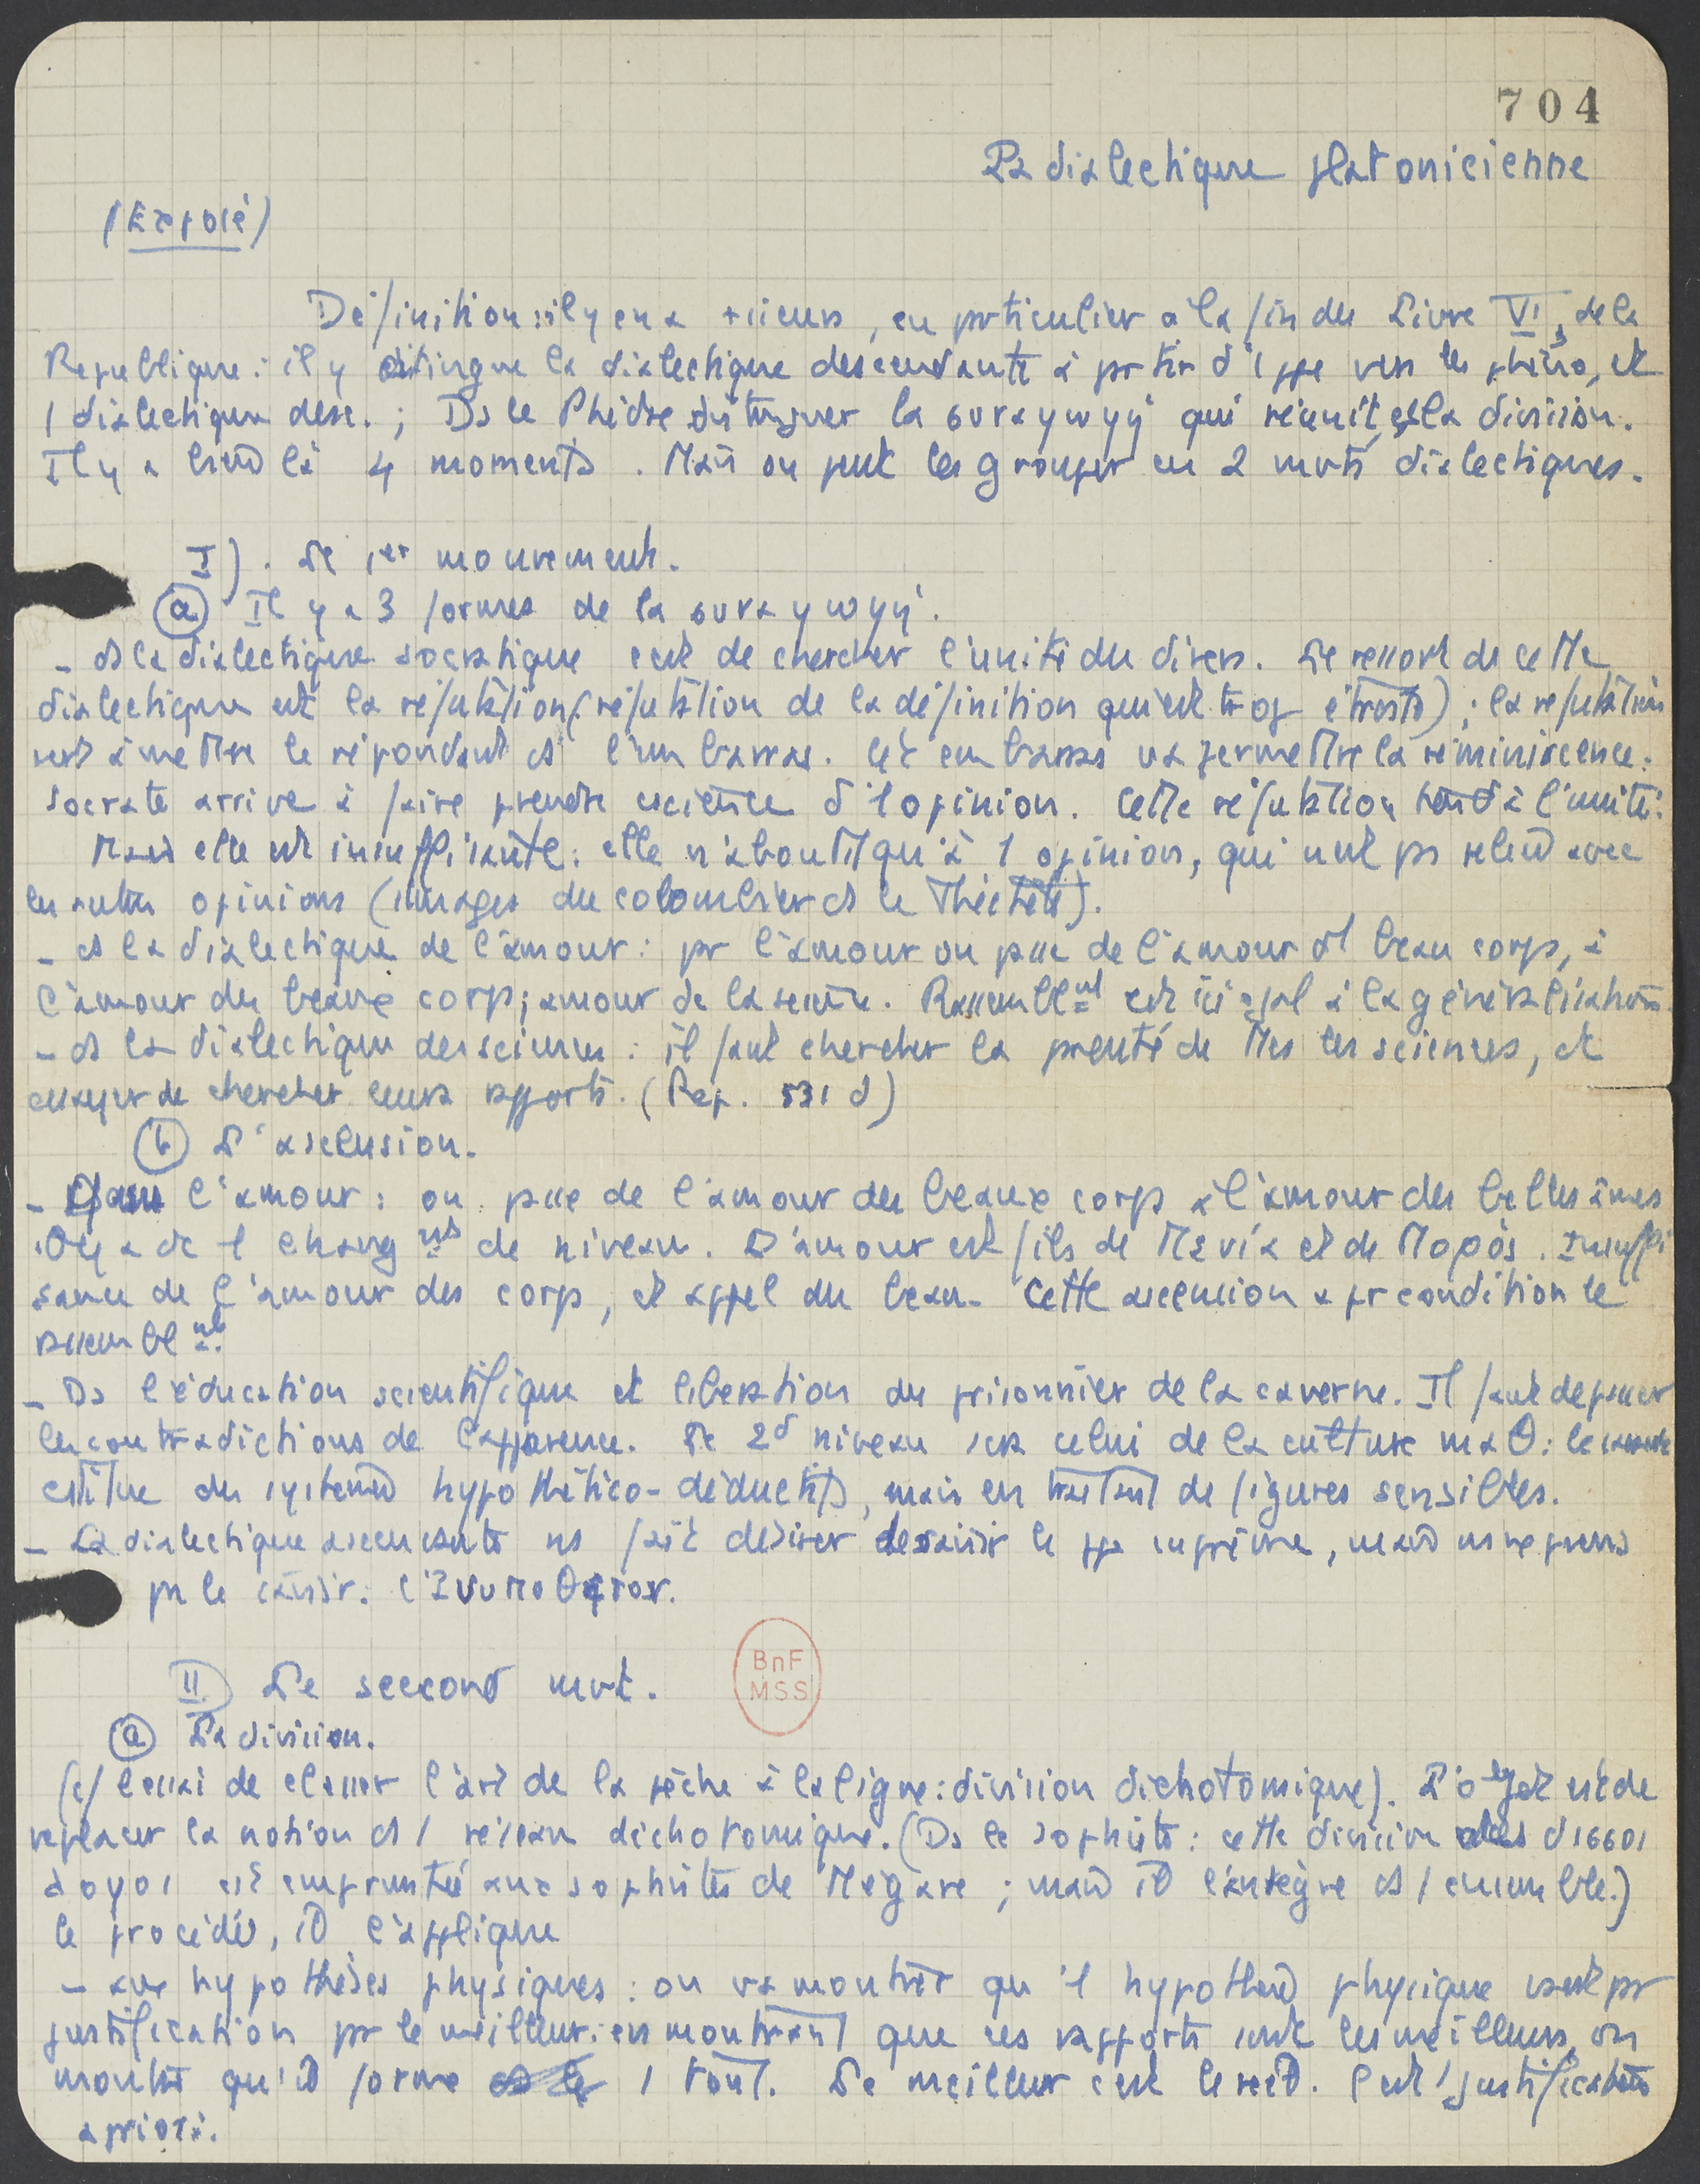 704
La dialectique platonicienne
(Exposé)
Définition : il y en a +sieurs, en prticulier à la fin du Livre VI, de la
République : il y distingue la dialectique descendante à prtir d'1 ppe vers les , et
1 dialectique desc. ; Ds le Phèdre distinguer la συναγωγή qui réunit, et la division.
Il y a bien là 4 moments. Mais on peut les grouper en 2 mvts dialectiques.
I). Le 1er mouvement.
(a) Il y a 3 formes de la συναγωγή.
- ds la dialectique socratique c'est de chercher l'unité du divers. Le ressort de cette
dialectique est la réfutation (réfutation de la définition qui est trop étroite) ; la réfutation
sert à mettre le répondant ds l'embarras. Cet embarras va permettre la réminiscence :
Socrate arrive à faire prendre cscience d'1 opinion. Cette réfutation tend à l'unité.
Mais elle est insuffisante : elle n'aboutit qu'à 1 opinion, qui n'est ps reliée avec
les autres opinions (images du colombier ds le Théétète).
- ds la dialectique de l'amour : pr l'amour on psse de l'amour d'1 beau corps, à
l'amour des beaux corps ; amour de la science. Rassemblnt est ici égal à la généralisation.
- ds la dialectique des sciences : il faut chercher la prenté de ttes les sciences, et
essayer de chercher leurs rapports. (Rep. 531 d)
(b) L'ascension.
- Dans l'amour : on psse de l'amour des beaux corps à l'amour des belles âmes
Il y a dc 1 changnt de niveau. L'amour est fils de Πενία et de Πορός. Insuffi
sance de l'amour des corps, et appel du beau. Cette ascension a pr condition le
rassemblnt.
- Ds l'éducation scientifique et libération du prisonnier de la caverne. Il faut dépasser
les contradictions de l'apparence. Le 2d niveau sera celui de la culture maθ : le
cstitue des systèmes hypothético-déductifs, mais en traitant de figures sensibles.
- La dialectique ascendante ns fait désirer de saisir le ppe suprême, mais ns ne pvons
ps le saisir : l'ἀνυπόθετον.
II) Le second mvt.
(a) La division.
(cf essai de classer l'art de la pêche à la ligne : division dichotomique). L'objet est de
replacer la notion ds 1 réseau dichotomique. (Ds le Sophiste : cette division des δισσοι
λογοι est empruntée aux sophistes de Mégare ; mais il l'intègre ds 1 ensemble.)
le procédé, il l'applique
- aux hypothèses physiques : on va montrer qu'1 hypothèse physique vaut pr
justification pr le meilleur : en montrant que ces rapports sont les meilleurs, on
montre qu'il forme 1 tout. Le meilleur c'est le réel. C'est 1 justification
a priori.
BnF
MSS